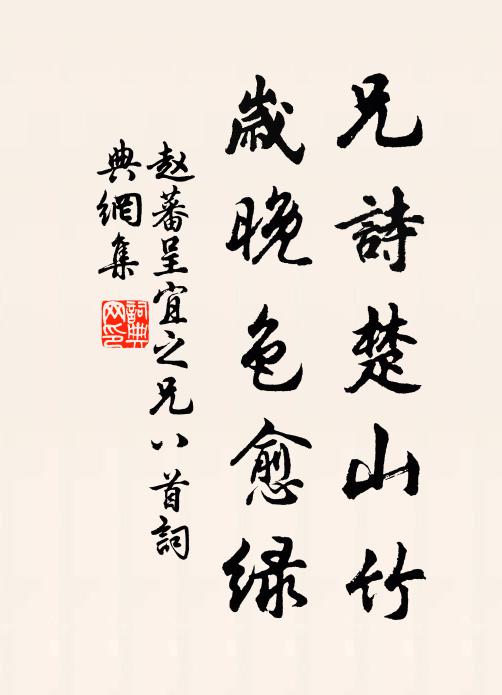 兄詩楚山竹
歲晚色愈绿
赵蕃呈宜之兄八首詞
典網集
詞典
网印